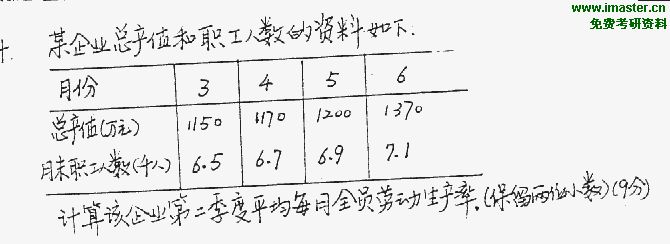 www.imaster.cn
免费考研资料
某企业总产值和职工人数的资料如下:
月份 3 4 5 6
总产值(万元) 1150 1170 1200 1370
月末职工人数(千人) 6.5 6.7 6.9 7.1
计算该企业第二季度平均每月全员劳动生产率。(保留两位小数)(9分)